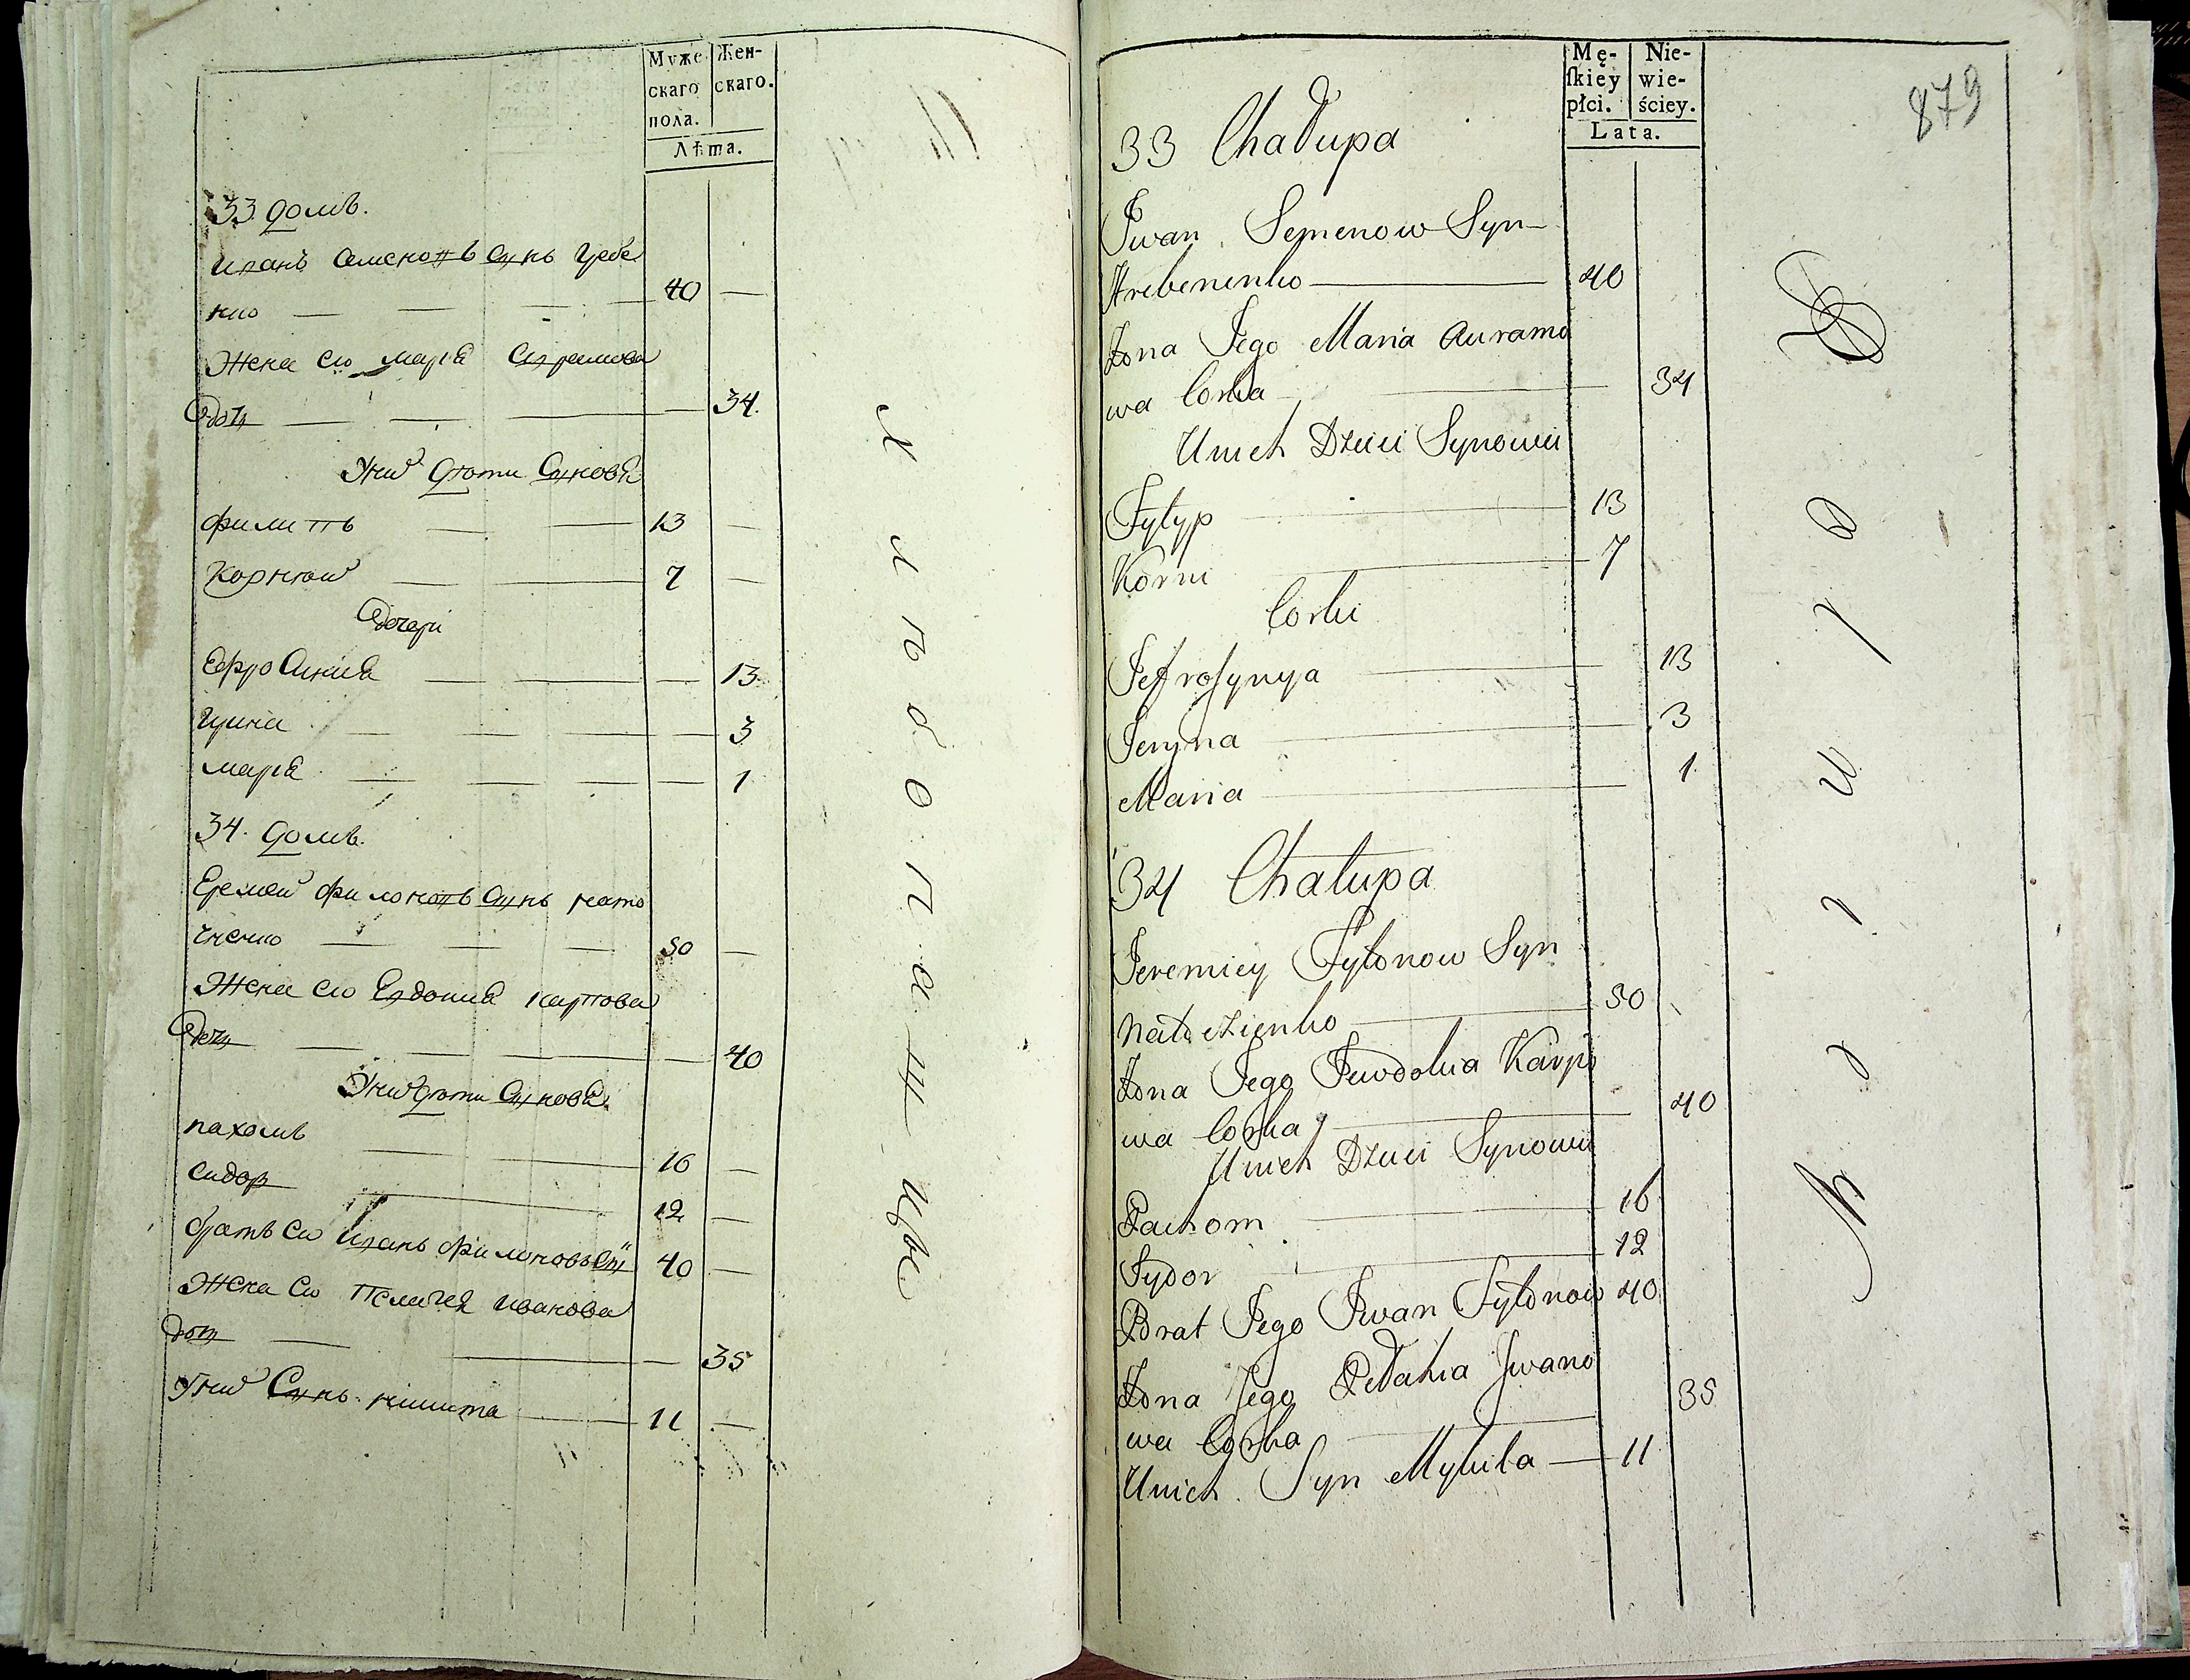 Муже
скаго
пола.
Жен-
скаго.
Лѣта.
33 домъ.
Иванъ Семеновъ Сынъ Гребе
нко 40
Жена его Марія Авраамова
дочь 34
У них дѣти Сыновя
Филипъ 13
Корней 7
Дочери
Ефросинія 13
Ирина 3
Марія 1
34. домъ.
Еремей Филоновъ Сынъ
50
Жена его Евдокия Карпова
дочь 40
У них дѣти Сыновя
Пахомъ 16
Сидор 12
братъ его Иванъ Филоновъ 40
Жена его Пелагея Иванова
дочь 35
У них Сынъ Никита 11
Mę-
ſkiey
płci.
Nie-
wie-
ściey.
Lata.
879
33 Chałupa
Jwan Semenow Syn
Hrebenenko 40
Żona Jego Maria Auramo
wa Corka 34
Unich Dzieci Synowie
Fylyp 13
Korni 7
Corki
Jefroſynya 13
Jeryna 3
Maria 1
34 Chałupa
Jeremiey Fyłonow Syn
50
Żona Jego Jewdokia Karpo
wa Corka 40
Unich Dzieci Synowie
Pachom 16
Sydor 12
Brat Jego Jwan Fyłonow 40
Żona Jego Pełahia Jwano
wa Corka 35
Unich Syn Mykita 11